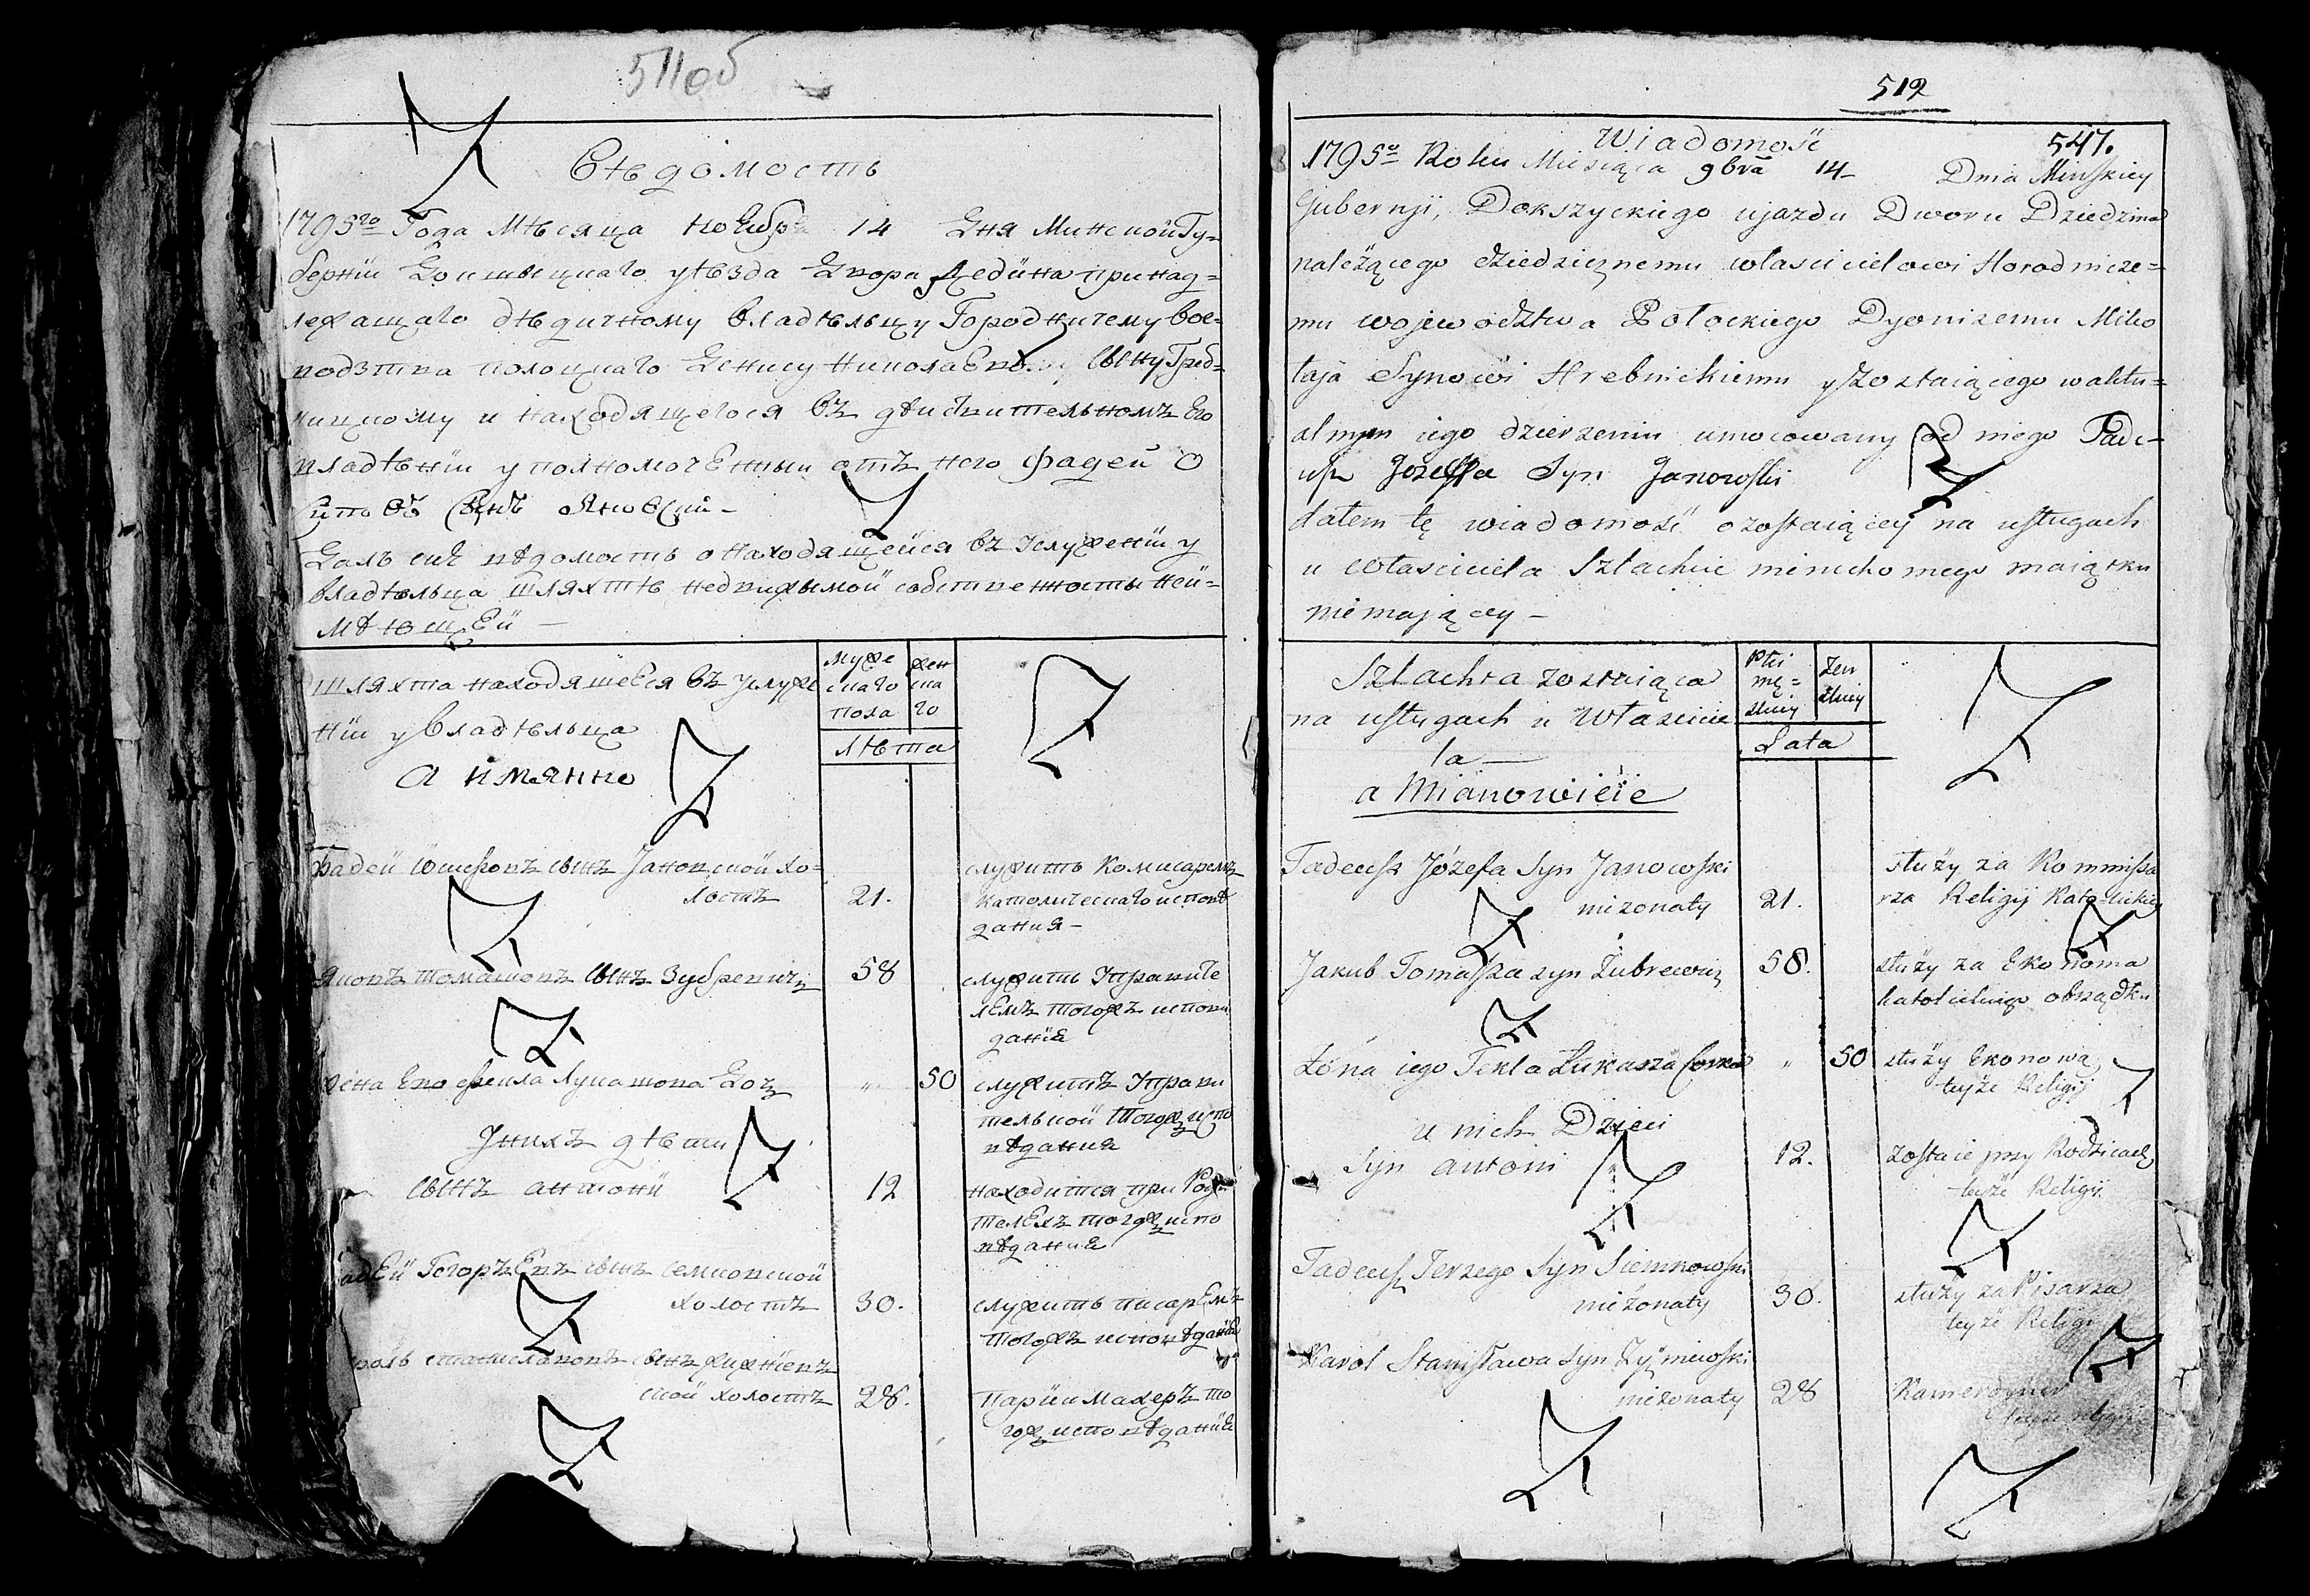 511об
Вѣдомость
1795го Года Мѣсяца Ноября 14 Дня Минской Гу=
берніи Докшыцкаго уѣзда Двора Дедина принад=
лежащаго дѣдичному владѣльцу Городничему вое=
водзтва полоцкаго Денису Николаеву сыну Греб=
ницкому и находящегося въ дѣиствительномъ Его
владѣніи уполномоченныи отъ него Фадей О
сиповъ сынъ Яновски -
Далъ сию вѣдомость о находящейся въ услуженіи у
владѣльца шляхтѣ недвижымой собственности неи=
мѣющей —
шляхта находяшеёся въ услуже
ніи у владѣльца
А имянно
муже
скаго
пола
жен
ска
го
лѣта
Фадей Юзефовъ сынъ Яновской хо=
лостъ
21.
служитъ комисаремъ
католическаго исповѣ
дания —
Яковъ томашовъ сынъ Зубревичъ
58
служить Управите
лемъ тогожъ испови
данія
жена Его фекла Лукашова Доч
" 50
служитъ Управи
тельной тогожъ испо
вѣдания
У нихъ дѣти
сынъ антоній
12
находится при Роди
телехъ тогожъ испо
вѣдания
адей Егоръевъ сынъ семковской
холостъ
30.
служитъ писаремъ
тогожъ исповѣданія
роль станиславовъ сынъ жижнѣев
ской холостъ
28.
парикмахеръ то
гожъ исповѣданія
512
547.
Wiadomość
1795o Roku Miesiąca 9bra 14 Dnia Minskiey
Gubernji, Dokszyckiego ujazdu Dworu Dziedzina
należącego dziedzicznemu własscicielowi Horodnicze=
mu wojewodztwa Połockiego Dyonizemu Miko
łaja Synowi Hrebnickiemu y zostaiącego w aktu=
alnym iego dzierzeniu umocowany od niego Tade=
usz Jozeffa Syn Janowski
dałem tę wiadomość o zostaiącey na usługach
u własciciela Szlachcie nieruchomego maiątku
niemającey —
Szlachta zostaiąca
na usługach u Własscicie
la —
a Mianowicie
Płci
mę=
zkiey
żen
skiey
Lata
Tadeusz Józefa Syn Janowski
niezonaty
21.
służy za Kommissa
rza Religij Katolickiey
Jakub Tomasza syn Zubrewicz
58.
służy za Ekonoma
katolickiego obrządku
Żona iego Tekla Łukasza Corka
" 50
służy Ekonową
teyże Religij
u nich Dzieci
Syn antoni
12.
zostaie przy Rodzicach
teyże Religij
Tadeusz Jerzego Syn Siemkowski
nieżonaty
30.
służy za Pisarza
teyże Religij
Karol Stanisława Syn Żyżniewski
niezonaty
28
Kamerdyner
teyże religij